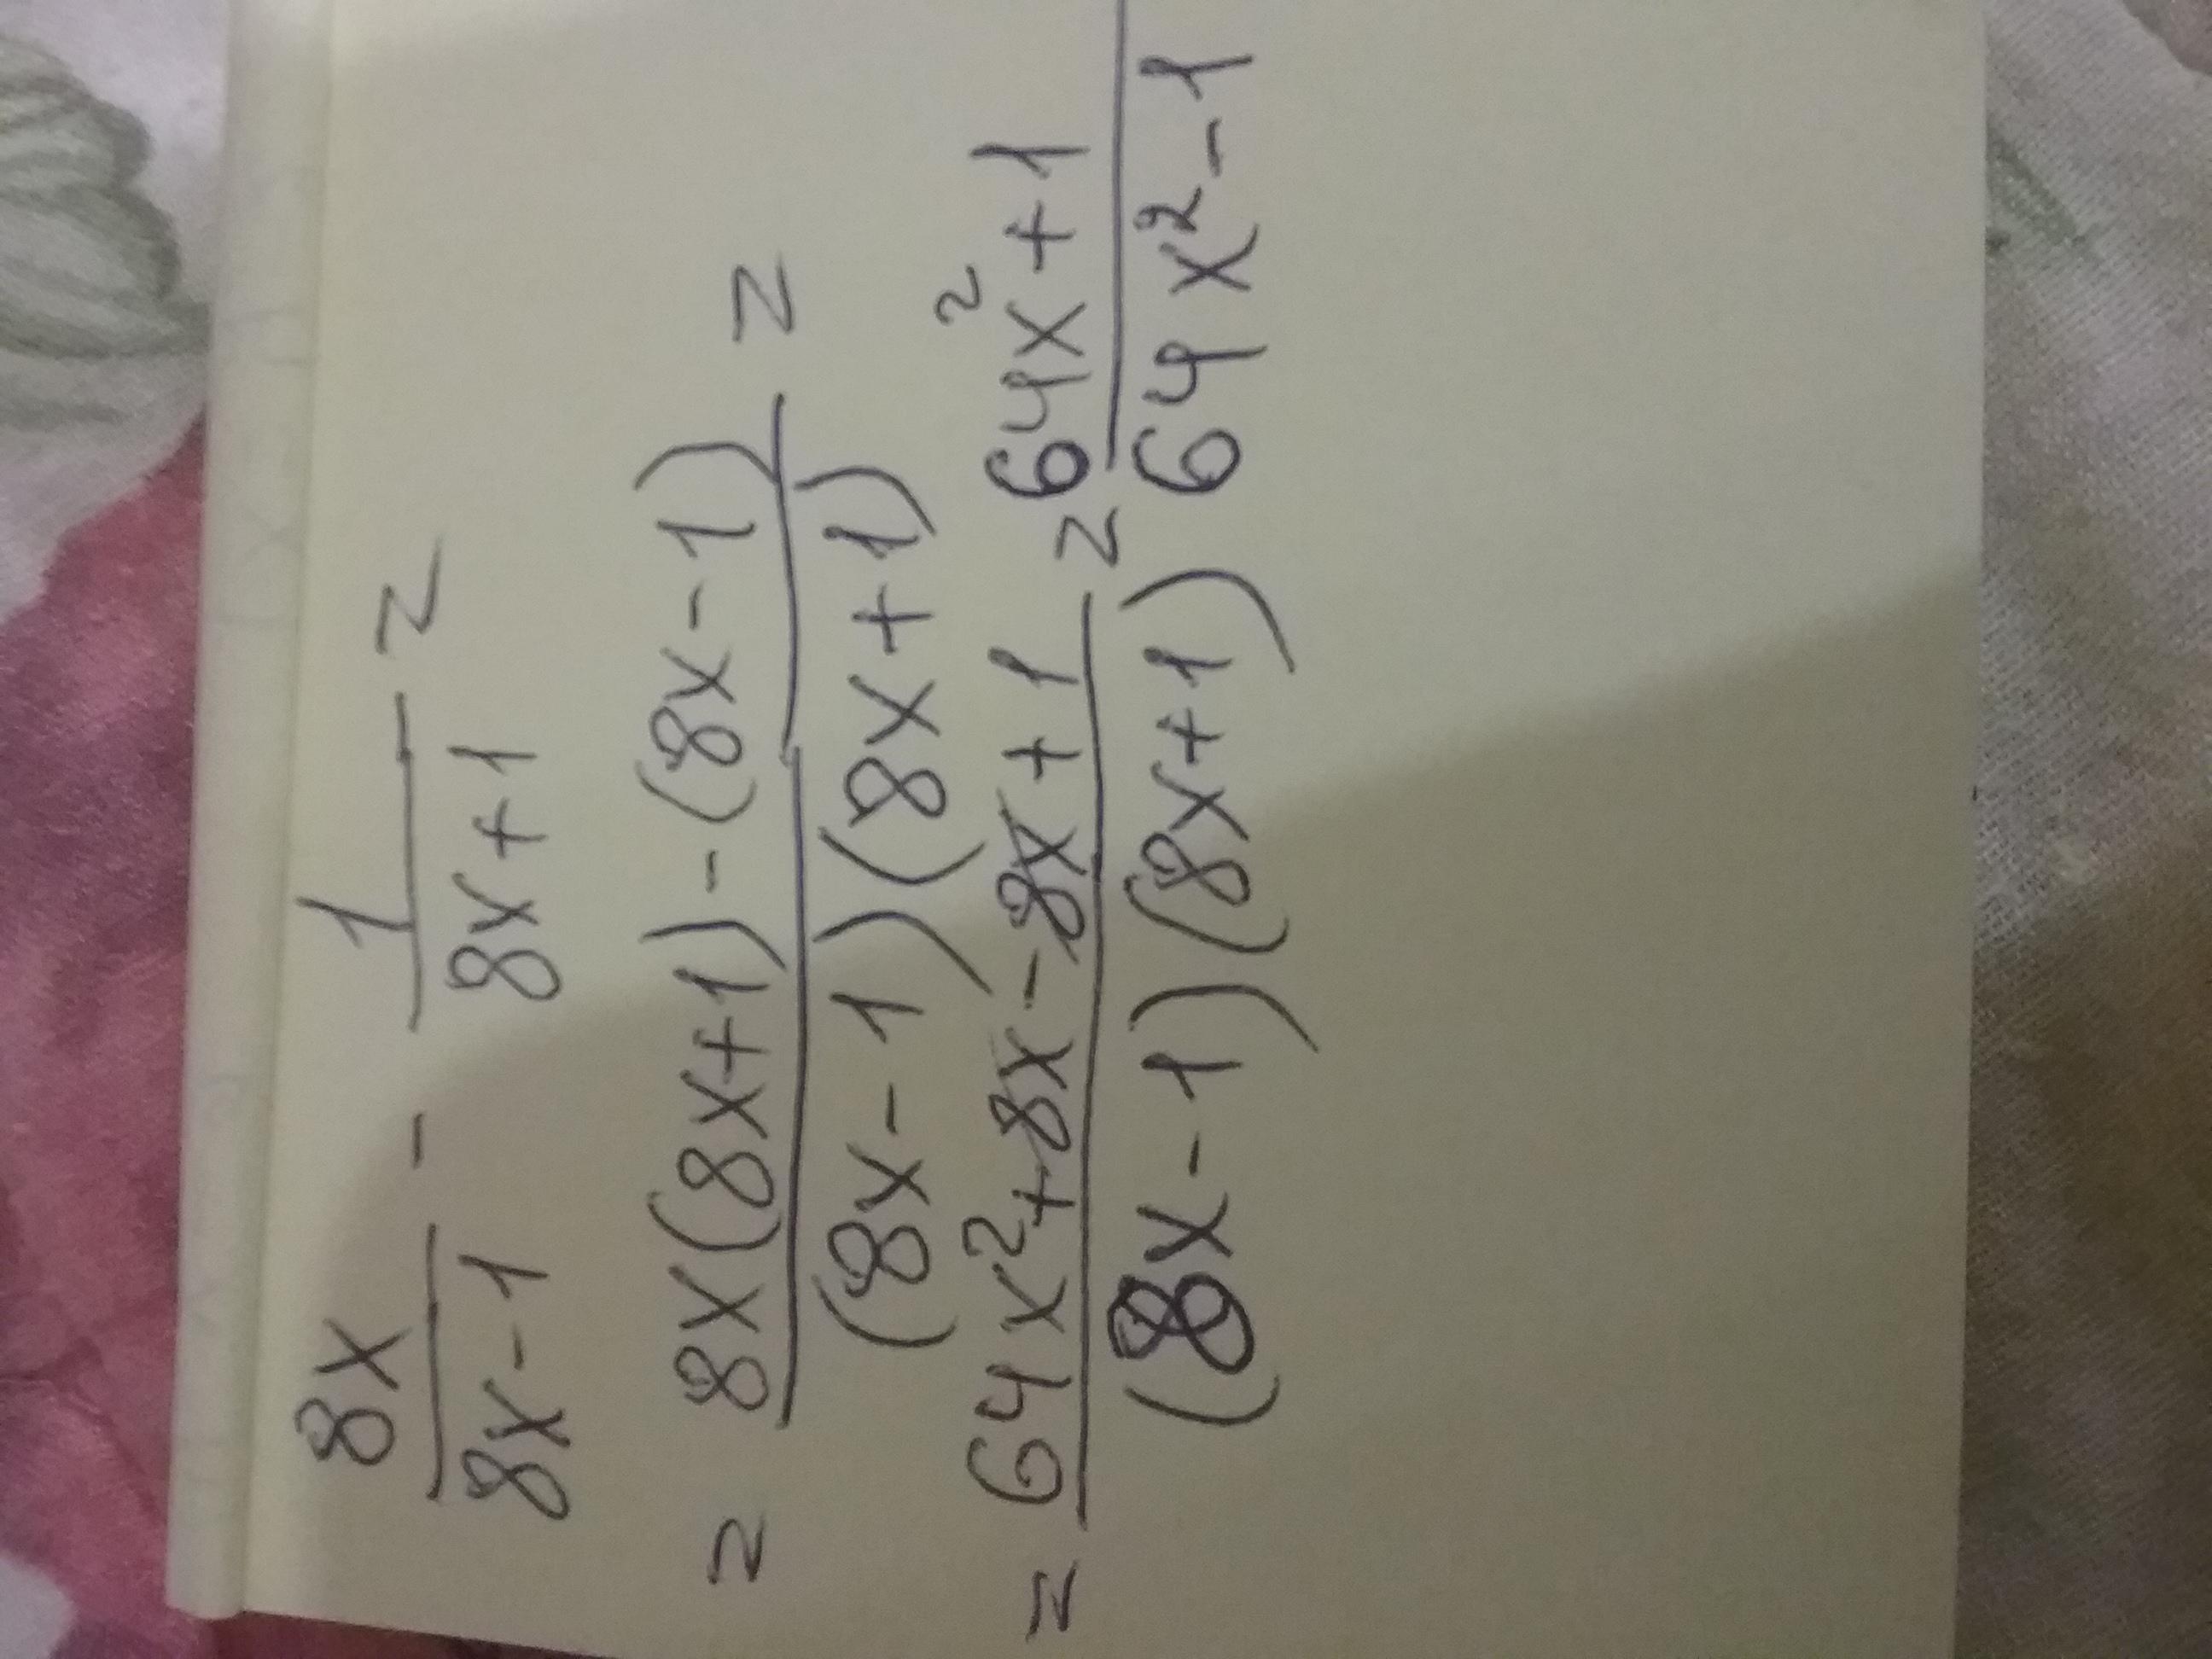 8x/(8x-1) - 1/(8x+1) =
= (8x(8x+1)-(8x-1))/((8x-1)(8x+1)) =
= (64x²+8x-8x+1)/((8x-1)(8x+1)) = (64x²+1)/(64x²-1)